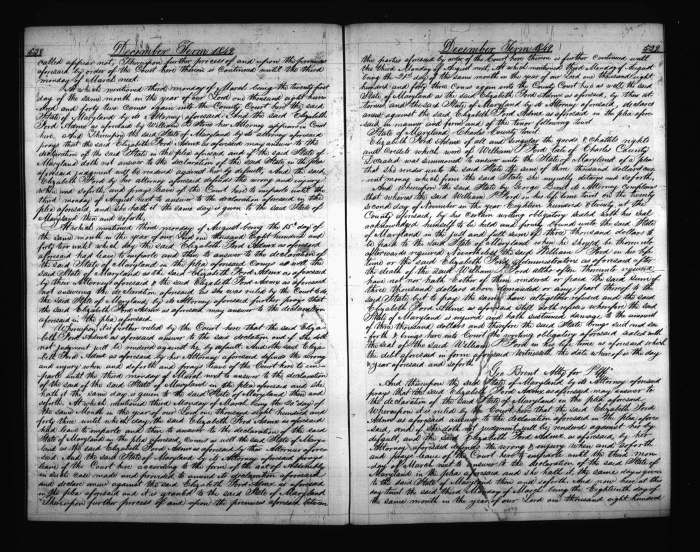 528
December Term 1849
called appear not, Thereupon further process of and upon the premises
aforesaid by order of the Court here thereon is Continued until the third
monday of March next.
At which mentioned third monday of March being the twenty first
day of the same month in the year of our Lord one thousand eight hun
dred and forty two Comes again into the County Court here the said
State of Maryland by its Attorney aforesaid, And the said Elizabeth
Ford Admx as aforesaid by William his Attorney appears in Court
here, after Imparling the said State of Maryland by its attorney aforesaid
prays that the said Elizabeth Ford Admx as aforesaid may answer to the
declaration of the said State in the plea aforesaid and if the said State of
Maryland doth not answer to the declaration of the said State in the plea
aforesaid judgment will be rendered against her by default, And the said
Elizabeth Ford by her attorney aforesaid defends the wrong and injury
when and soforth, and prays leave of the Court here to imparle until the
third monday of August next to answer to the declaration aforesaid in the
plea aforesaid, and she hath the same day is given to the said State of
Maryland then and soforth,
At which mentioned third monday of August being the 15th day of
the same month in the year of our Lord one thousand eight hundred and
forty two until which day the said Elizabeth Ford Admx as aforesaid
aforesaid had leave to imparle and then to answer to the declaration of
the said State of Maryland in the plea aforesaid Comes as well the
said State of Maryland as the said Elizabeth Ford Admx as aforesaid
by their Attorneys aforesaid & the said Elizabeth Ford Admx as aforesaid
not answering the declaration aforesaid as she was ruled by the Court & so
the said State of Maryland by its Attorney aforesaid further prays that
the said Elizabeth Ford Admx as aforesaid may answer to the declaration
aforesaid in the plea aforesaid.
Whereupon it is further ruled by the Court here that the said Eliza
beth Ford Admx as aforesaid answer to the said declaration and if she doth
not judgment will be rendered against her by default, And the said Eliza
beth Ford Admx as aforesaid by her Attorney aforesaid defends the wrong
and injury when and soforth and prays leave of the Court here to im
parle until the third monday of March next to answer to the declaration
of the said of the said State of Maryland in the plea aforesaid and she
hath the same day is given to the said State of Maryland then and so
forth. At which mentioned third Monday of March being the day of
the same Month in the year of our Lord one thousand eight hundred and
forty three until which day the said Elizabeth Ford Admx as aforesaid
had leave to imparle and then to answer to the declaration of the said
State of Maryland in the plea aforesaid, Comes as well the said State of Mary
land as the said Elizabeth Ford Admx as aforesaid by their Attorneys afore
said. And the said State of Maryland by its Attorney aforesaid prays
leave of the Court here according to the form of the act of Assembly
in such case made and provided to amend its declaration aforesaid,
and declare anew against the said Elizabeth Ford Admx as aforesaid
in the plea aforesaid and it is granted to the said State of Maryland
Thereupon further process of and upon the premises aforesaid between
December Term 1849
529
the parties aforesaid by order of the Court here thereon is further Continued until
the third Monday of August next, At which mentioned third Monday of August
being the 21st day of the same month in the year of our Lord one thousand eight
hundred and forty three Comes again into the County Court here as well the said
State of Maryland as the said Elizabeth Ford Admx as aforesaid, by their at
tornies, and the said State of Maryland by its Attorney aforesaid, declares
anew against the said Elizabeth Ford Admx as aforesaid in the plea afore
said in manner and form of the tenor following towit,
State of Maryland, Charles County towit,
Elizabeth Ford Admx of all and singular the goods & chattels rights
and Credits which were of William Ford late of Charles County
Deceased was summoned to answer unto the State of Maryland of a plea
that she render unto the said State the sum of three thousand dollars cur
rent money which from the said State she unjustly detains and soforth,
And whereupon the said State by George Brent its Attorney Complains
that whereas the said William Ford in his life time towit on the twenty
second day of November in the year Eighteen hundred & at the
County aforesaid, by his certain writing obligatory sealed with his seal
acknowledged himself to be held and firmly bound unto the said State
of Maryland in the just and full sum of three thousand dollars
to be paid to the said State of Maryland when he should be thereunto
afterwards required; Nevertheless the said William Ford in his life
time or the said Elizabeth Ford administratrix as aforesaid after
the death of the said William Ford altho often thereunto required
have not nor hath either of them rendered or paid the said sum of
three thousand dollars above demanded or any part thereof to the
said State but to pay the same have altogether refused and the said
Elizabeth Ford Admx as aforesaid still doth refuse, wherefore the said
State of Maryland is injured and hath sustained damage to the amount
of three thousand dollars and therefore the said State brings suit and so
forth & brings here into Court the writing obligatory aforesaid sealed with
the seal of the said William Ford in his life time as aforesaid which
the debt aforesaid in form aforesaid witnesseth the date whereof is the day
& year aforesaid and soforth
Geo Brent Atty for Plff
And thereupon the said State of Maryland by its attorney aforesaid
prays that the said Elizabeth Ford Admx as aforesaid may answer to
the declaration of the said State of Maryland in the plea aforesaid,
Whereupon it is ruled by the Court here that the said Elizabeth Ford
Admx as aforesaid answer to the declaration aforesaid in the plea afore
said, and if she doth not judgment will be rendered against her by
default, and the said Elizabeth Ford admx as aforesaid, by her
Attorney aforesaid defends the wrong & injury when and soforth
and prays leave of the Court here to imparle until the third mon
day of March next to answer to the declaration of the said State of
Maryland in the plea aforesaid and she hath it, the same day is given
to the said State of Maryland then and soforth. And now here at this
day towit the said third Monday of March being the Eighteenth day of
the same month in the year of our Lord one thousand eight hundred